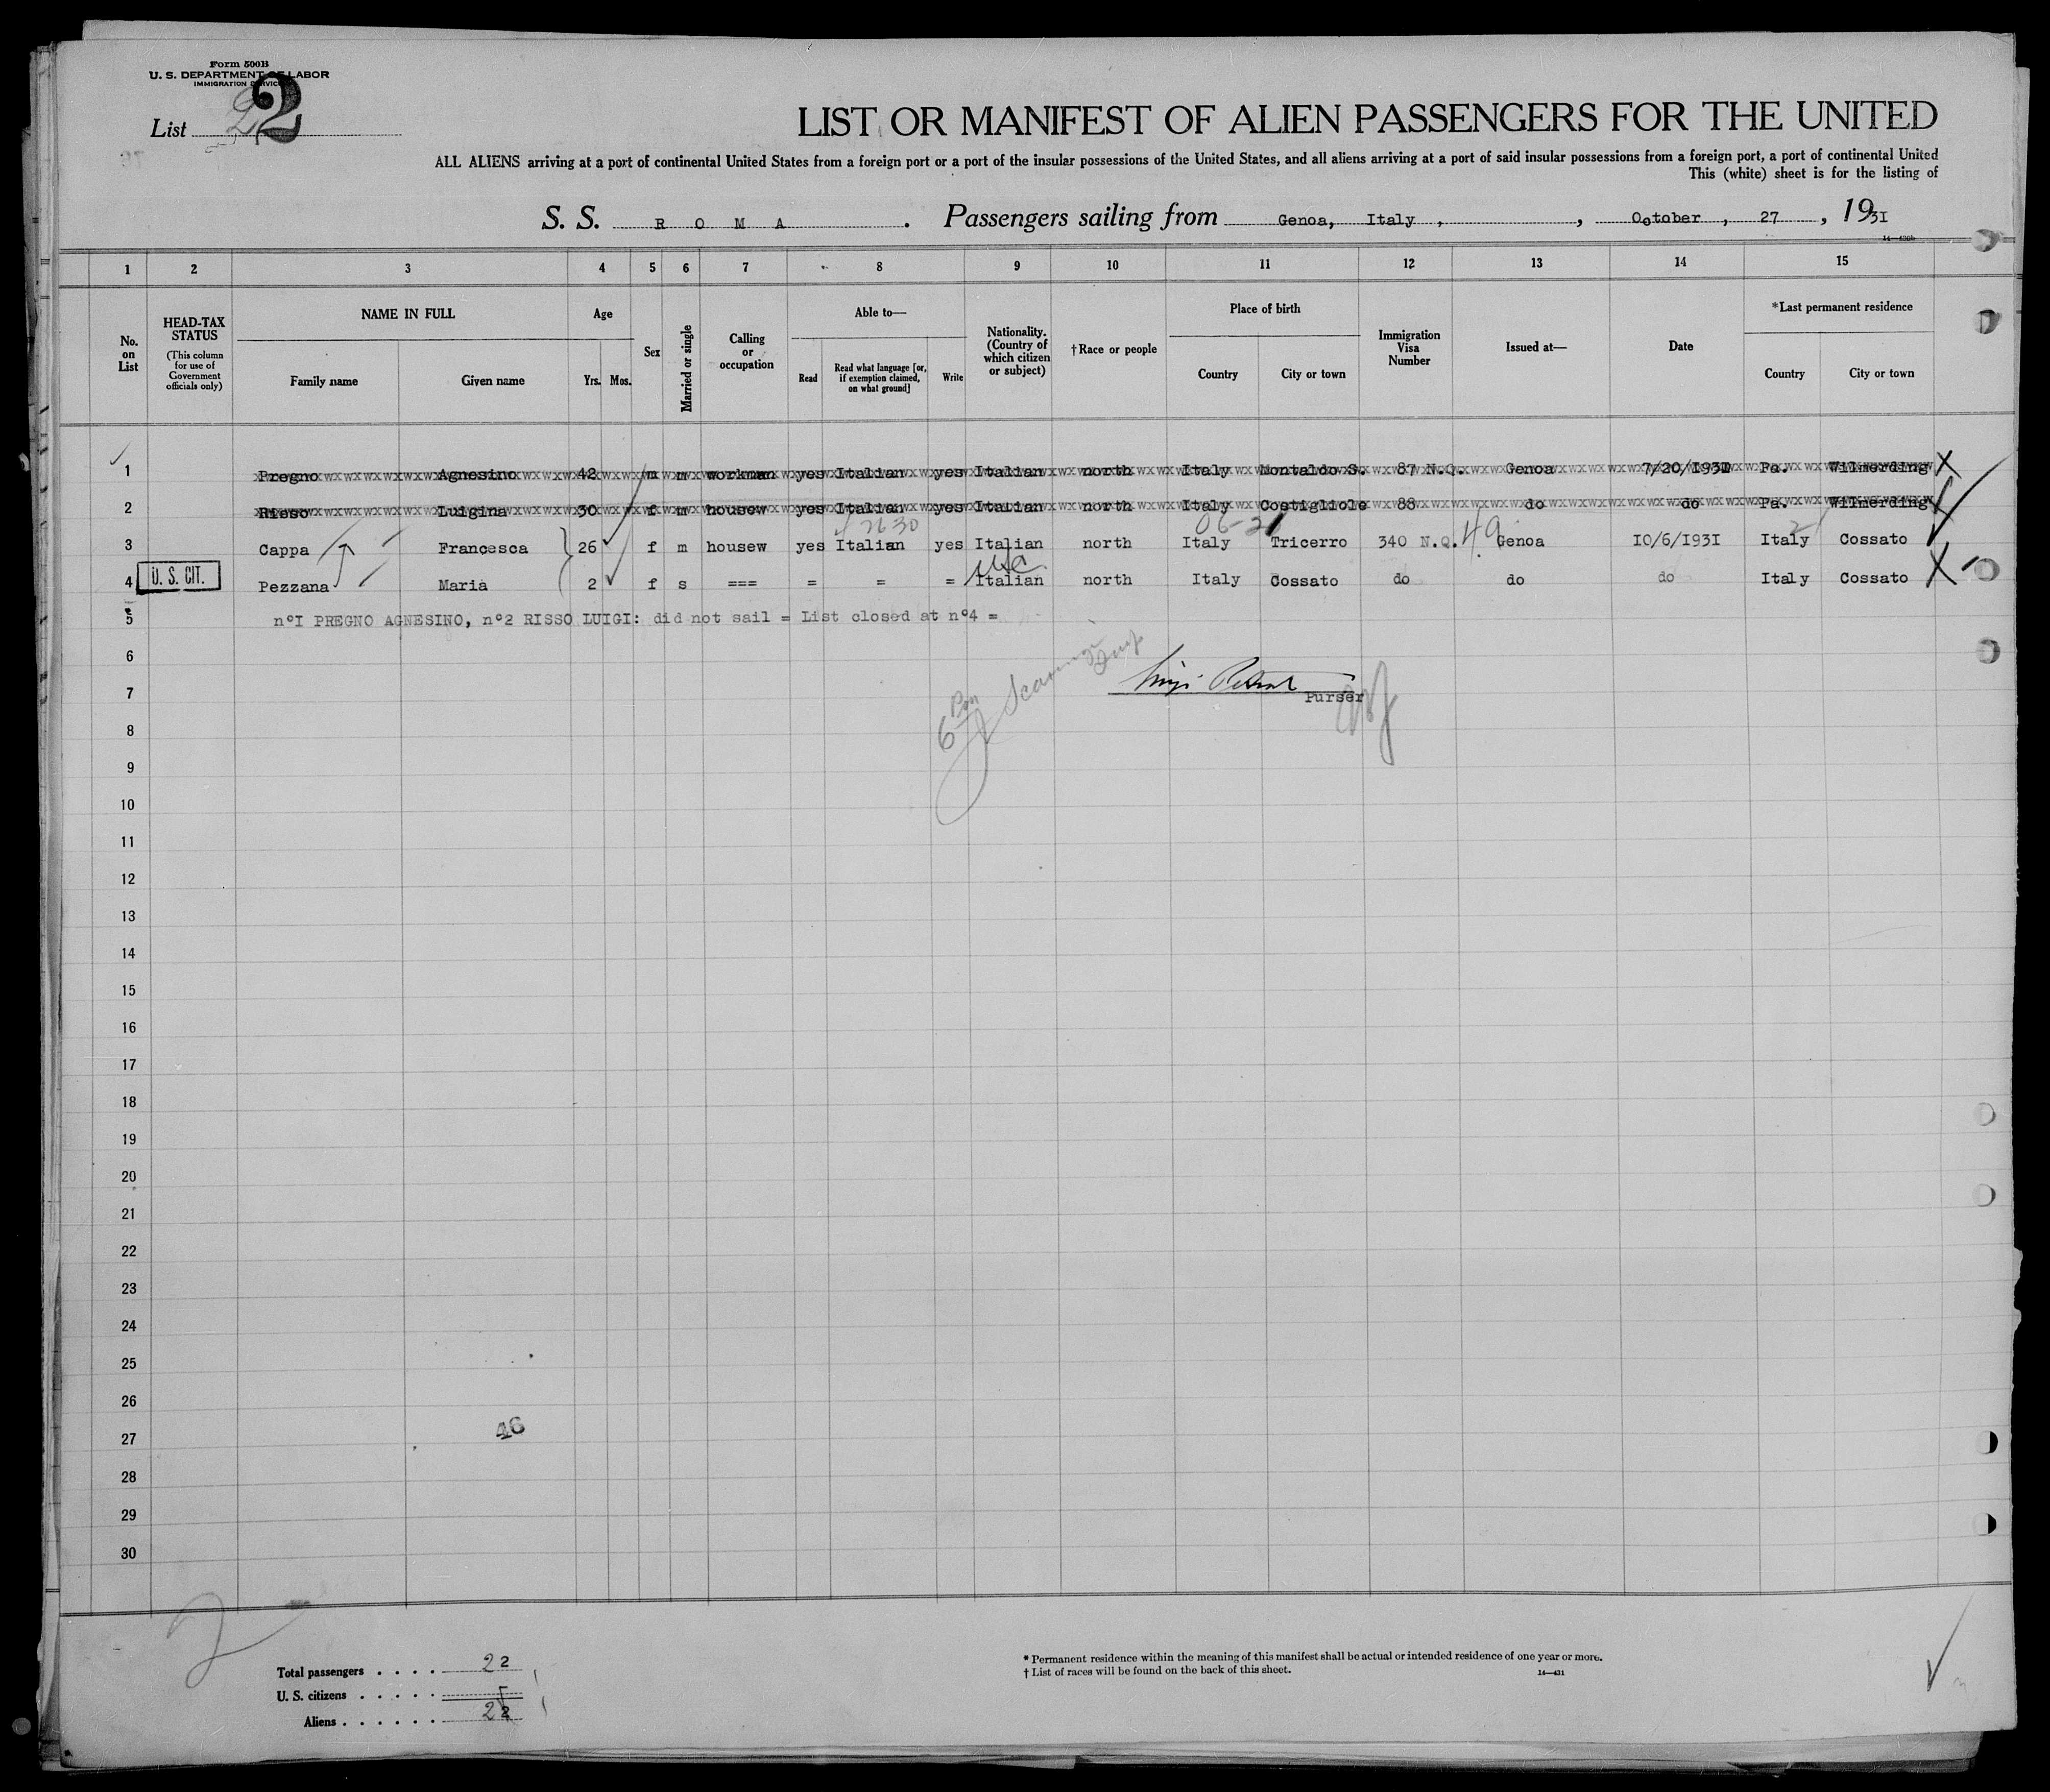 Form 500B
U. S. DEPARTMENT OF LABOR
IMMIGRATION SERVICE
List 2 2
LIST OR MANIFEST OF ALIEN PASSENGERS FOR THE UNITED
ALL ALIENS arriving at a port of continental United States from a foreign port or a port of the insular possessions of the United States, and all aliens arriving at a port of said insular possessions from a foreign port, a port of continental United
This (white) sheet is for the listing of
S. S. R O M A . Passengers sailing from Genoa, Italy , , October , 27 , 1931
1 2 3 4 5 6 7 8 9 10 11 12 13 14 15
No. on List
HEAD-TAX STATUS (This column for use of Government officials only)
NAME IN FULL
Family name Given name
Age
Yrs. Mos.
Sex
Married or single
Calling or occupation
Able to—
Read Read what language [or, if exemption claimed, on what ground] Write
Nationality. (Country of which citizen or subject)
†Race or people
Place of birth
Country City or town
Immigration Visa Number
Issued at—
Date
*Last permanent residence
Country City or town
1 Pregno Agnesino 42 m m workman yes Italian yes Italian north Italy Montaldo S. 87 N.Q. Genoa 7/20/1931 Pa. Wilmerding X
2 Risso Luigina 30 f m housew yes Italian yes Italian north Italy Costigliole 88 do do Pa. Wilmerding
2630 06-21 4a
3 Cappa Francesca 26 f m housew yes Italian yes Italian north Italy Tricerro 340 N.Q. Genoa 10/6/1931 Italy Cossato
USC
4 U. S. CIT. Pezzana Maria 2 f s === = = = Italian north Italy Cossato do do do Italy Cossato X
5 n°I PREGNO AGNESINO, n°2 RISSO LUIGI: did not sail = List closed at n°4 =
6
7 Purser
8
9
10
11
12
13
14
15
16
17
18
19
20
21
22
23
24
25
26
27 46
28
29
30
2
Total passengers . . . . 2 2
U. S. citizens . . . . .
Aliens . . . . . . 2 2
* Permanent residence within the meaning of this manifest shall be actual or intended residence of one year or more.
† List of races will be found on the back of this sheet. 14—431